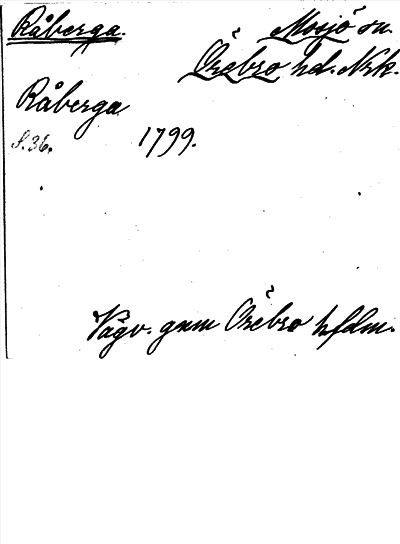 Råberga.
Mosjö sn.
Örebro hd. Nrk.
Råberga
S. 36.
1799.
Vägv. gnm Örebro hfdm.